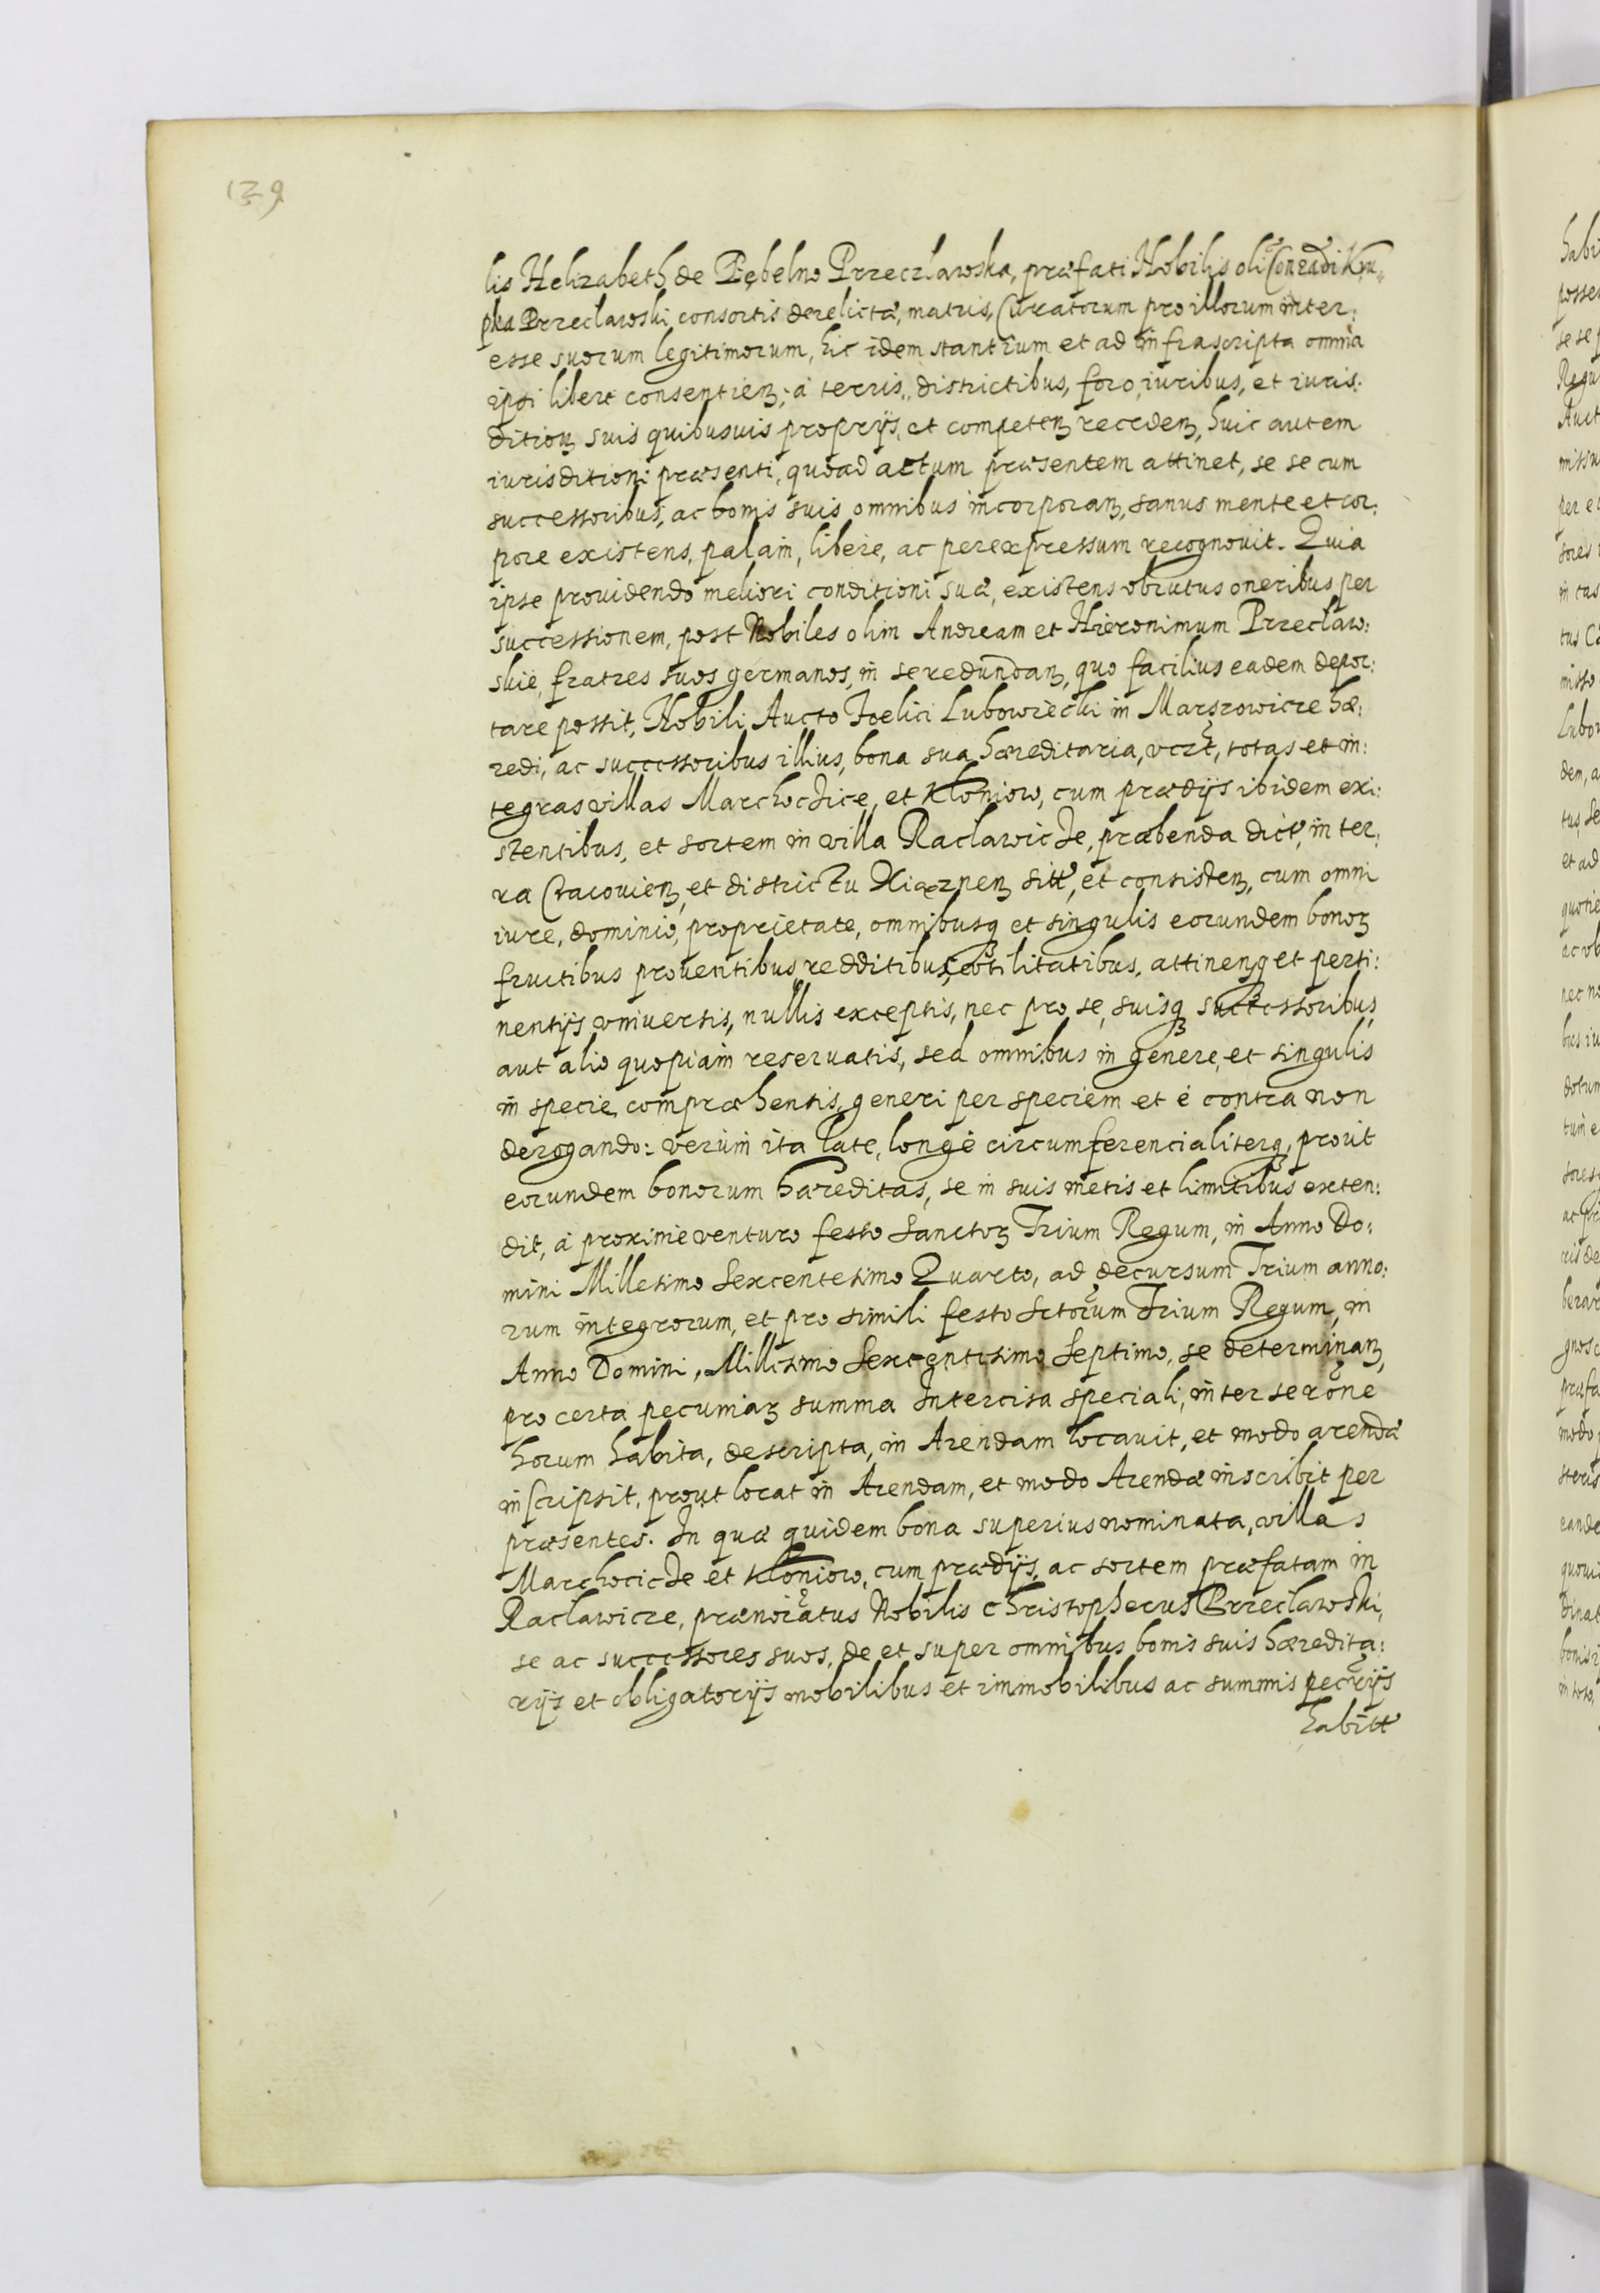 139
lis Helizabeth de Piębelno Przeczlawska, præfati Nobilis oli Conradi Kru„
pka Przeclawski consortis derelictæ, matris, Curatorum pro illorum inter:
esse suorum legitimorum, hic idem stantium et ad infrascripta omnia
ipsi libere consentien; à terris, districtibus, foro, iuribus, et iuris:
dition suis quibusuis proprijs, et competen receden, huic autem
iurisditioni præsenti, quoad actum præsentem attinet, se se cum
successoribus, ac bonis suis omnibus incorporan, sanus mente et cor:
pore existens, palam, libere, ac per expressum recognouit. Quia
ipse prouidendo meliori conditioni suæ, existens obrutus oneribus per
successionem, post Nobiles olim Andream et Hieronimum Przeclaw:
skie, fratres suos germanos, in se redundan, quo facilius eadem depor:
tare possit, Nobili Aucto Foelici Lubowiecki in Marszowicze hæ:
redi, ac successoribus illius, bona sua hæreditaria, vczt, totas et in:
tegras villas Marchocice, et Kłoniow, cum prædijs ibidem exi:
stentibus, et sortem in villa Raclawicze, præbenda dict, in ter:
ra Cracouien, et districtu Xiąznen sitt, et consisten, cum omni
iure, dominio, proprietate, omnibusq et singulis eorundem bonoꝝ
fructibus prouentibus redditibus, vtilitatibus, attinen et perti:
nentijs vniuersis, nullis exceptis, nec pro se, suisq successoribus
aut alio quopiam reseruatis, sed omnibus in genere, et singulis
in specie, compræhensis, generi per speciem et è contra non
derogando: verùm ita late, longè circumferencialiterq, prout
eorundem bonorum hæreditas, se in suis metis et limitibus exten:
dit, à proximè venturo festo Sanctoꝝ Trium Regum, in Anno Do:
mini Millesimo Sexcentesimo Quarto, ad decursum Trium anno:
rum integrorum, et pro simili festo Sctorum Trium Regum, in
Anno Domini, Millesimo Sexcentesimo Septimo, se determinan,
pro certa pecuniaꝝ summa Intercisa speciali, inter se rone
horum habita, descripta, in Arendam locauit, et modo arendæ
inscripsit, prout locat in Arendam, et modo Arendæ inscribit per
præsentes. In quæ quidem bona superius nominata, villas
Marchocicze et Kłoniow, cum prædijs, ac sortem præfatam in
Raclawicze, prænoiatus Nobilis Christopherus Przeclawski,
se ac successores suos, de et super omnibus bonis suis hæredita:
rijs et obligatorijs mobilibus et immobilibus ac summis pecrijs
habitt